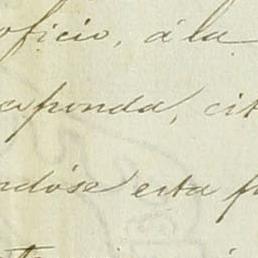 oficio, á la
sponda, cit
ndóse esta f